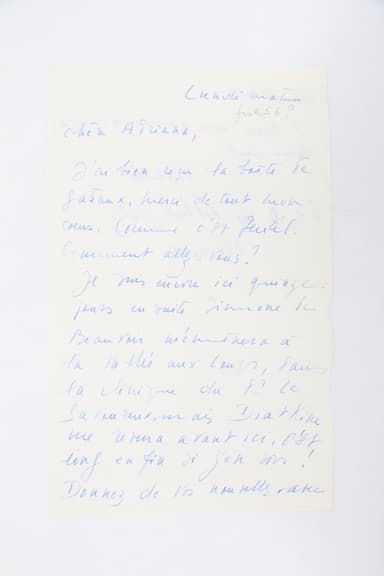 Lundi matin
Chèr Adriana,
J'ai bien reçu la boîte de
gâteaux, merci de tout mon
coeur. Comme c'est gentil.
Comment allez vous?
Je suis encore ici quinze
jours ensuite Simone de
Beauvoir m'emmènera à
la Vallée aux Loups, dans
la clinique du Dr Le
Savoureux mais Diatkine
me reverra avant ici, c'est
long enfin si j'en sors!
Donnez de vos nouvelles